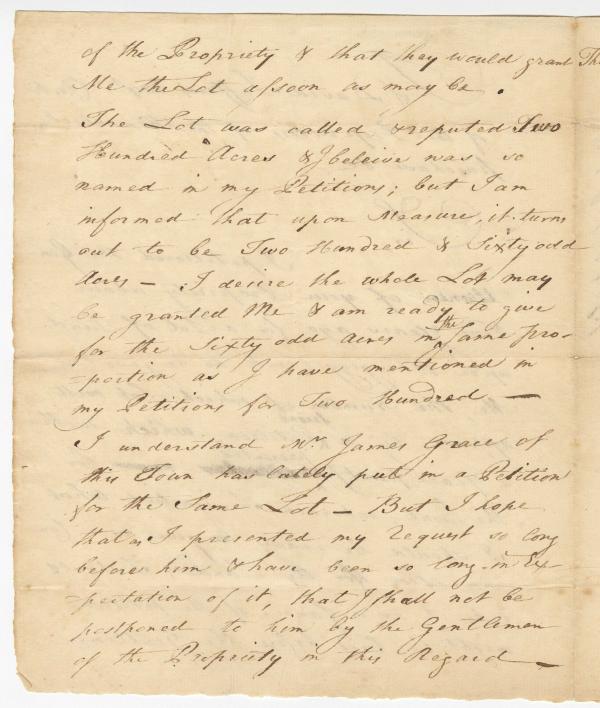 of the Propriety & that they would grant
Me the Lot assoon as may be.
The Lot was called & reputed Two
Hundred Acres & I beleive was so
named in my Petitions; but I am
informed that upon Measure, it turns
out to be Two Hundred & Sixty odd
Acres — I desire the whole Lot may
be granted Me & am ready to give
for the Sixty odd Acres in the Same pro-
-portion as I have mentioned in
my Petitions for Two Hundred —
I understand Mr. James Grace of
this Town has lately put in a Petition
for the Same Lot — But I hope
that as I presented my Request so long
before him & have been so long in Ex-
-pectation of it, that I shall not be
postponed to him by the Gentlemen
of the Propriety in this Regard —